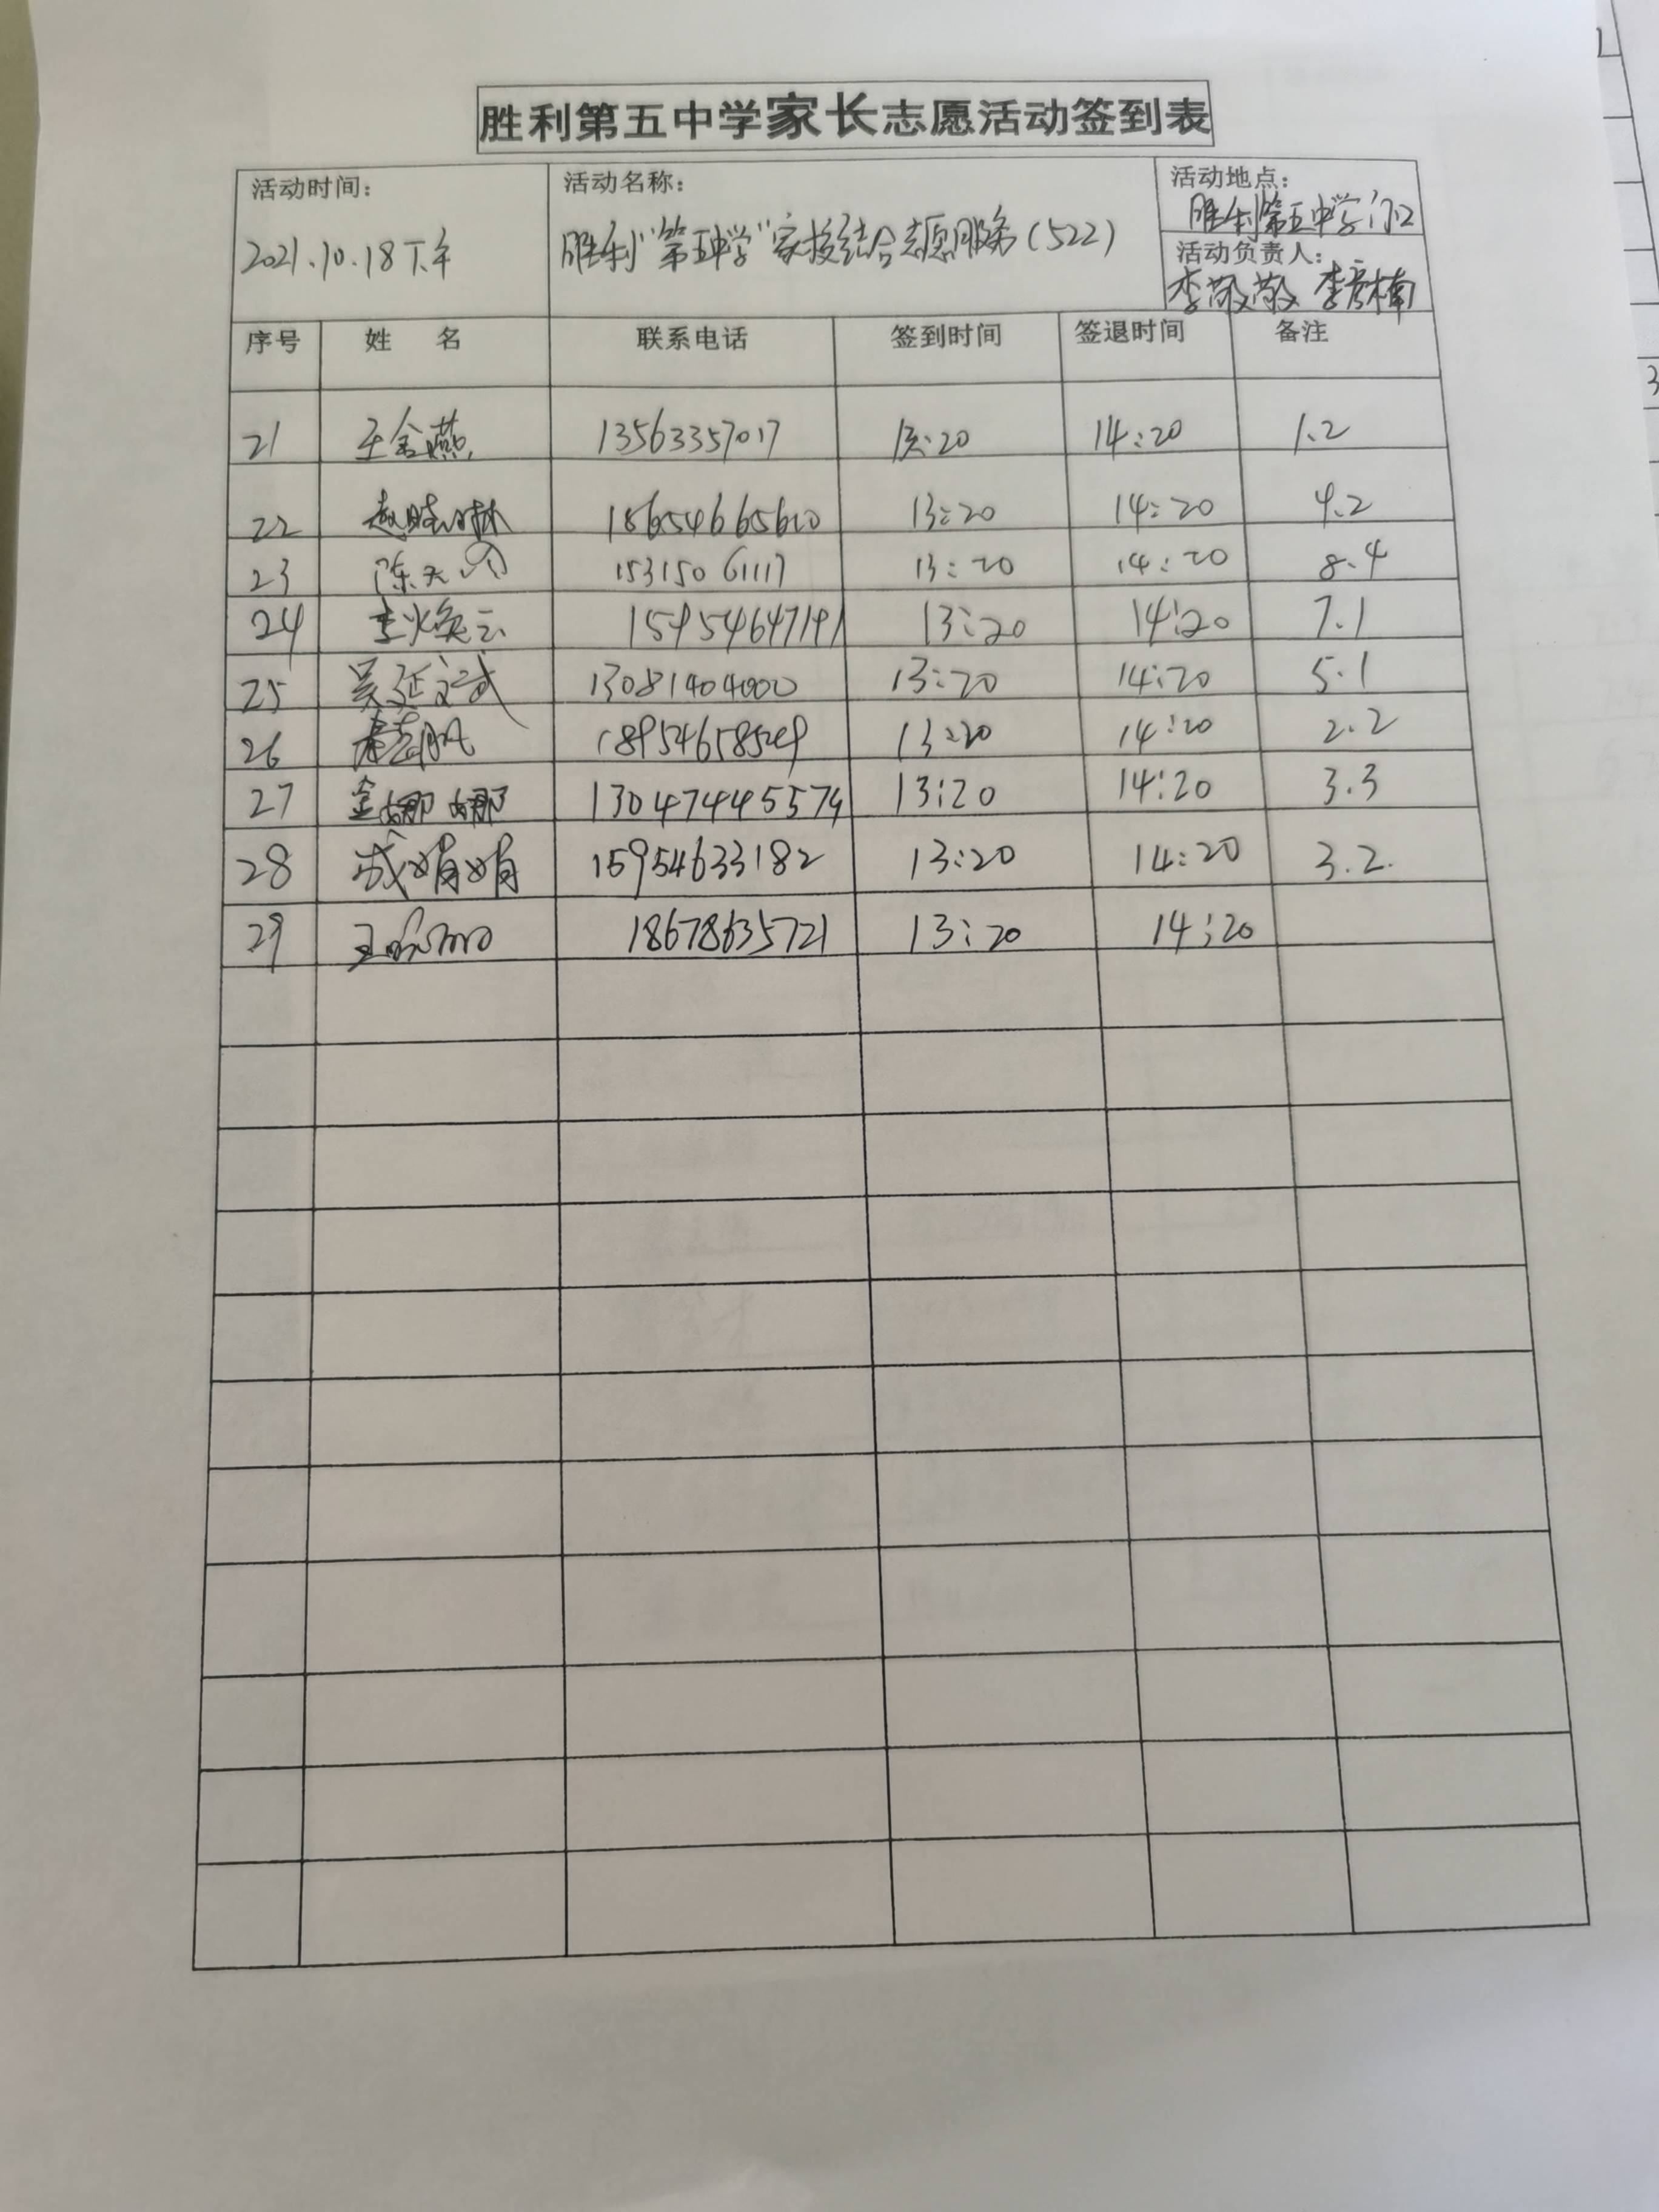 胜利第五中学家长志愿活动签到表
活动时间： 活动名称： 活动地点：
2021.10.18下午 胜利"第五中学"家校结合志愿服务(522) 胜利第五中学门口
活动负责人：
李敬敬 李彦楠
序号 姓 名 联系电话 签到时间 签退时间 备注
21 王金燕 13563357017 13:20 14:20 1.2
22 赵晓林 18654665610 13:20 14:20 4.2
23 陈天 15315061117 13:20 14:20 8.4
24 李焕云 15954647191 13:20 14:20 7.1
25 吴延武 13081404000 13:20 14:20 5.1
26 18954658529 13:20 14:20 2.2
27 金娜娜 130474445574 13:20 14:20 3.3
28 成娟娟 15954633182 13:20 14:20 3.2.
29 王 18678635721 13:20 14:20